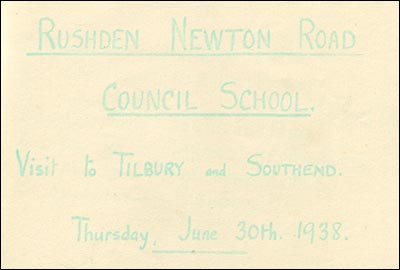 RUSHDEN NEWTON ROAD
COUNCIL SCHOOL.
Visit to TILBURY and SOUTHEND.
Thursday, June 30th. 1938.